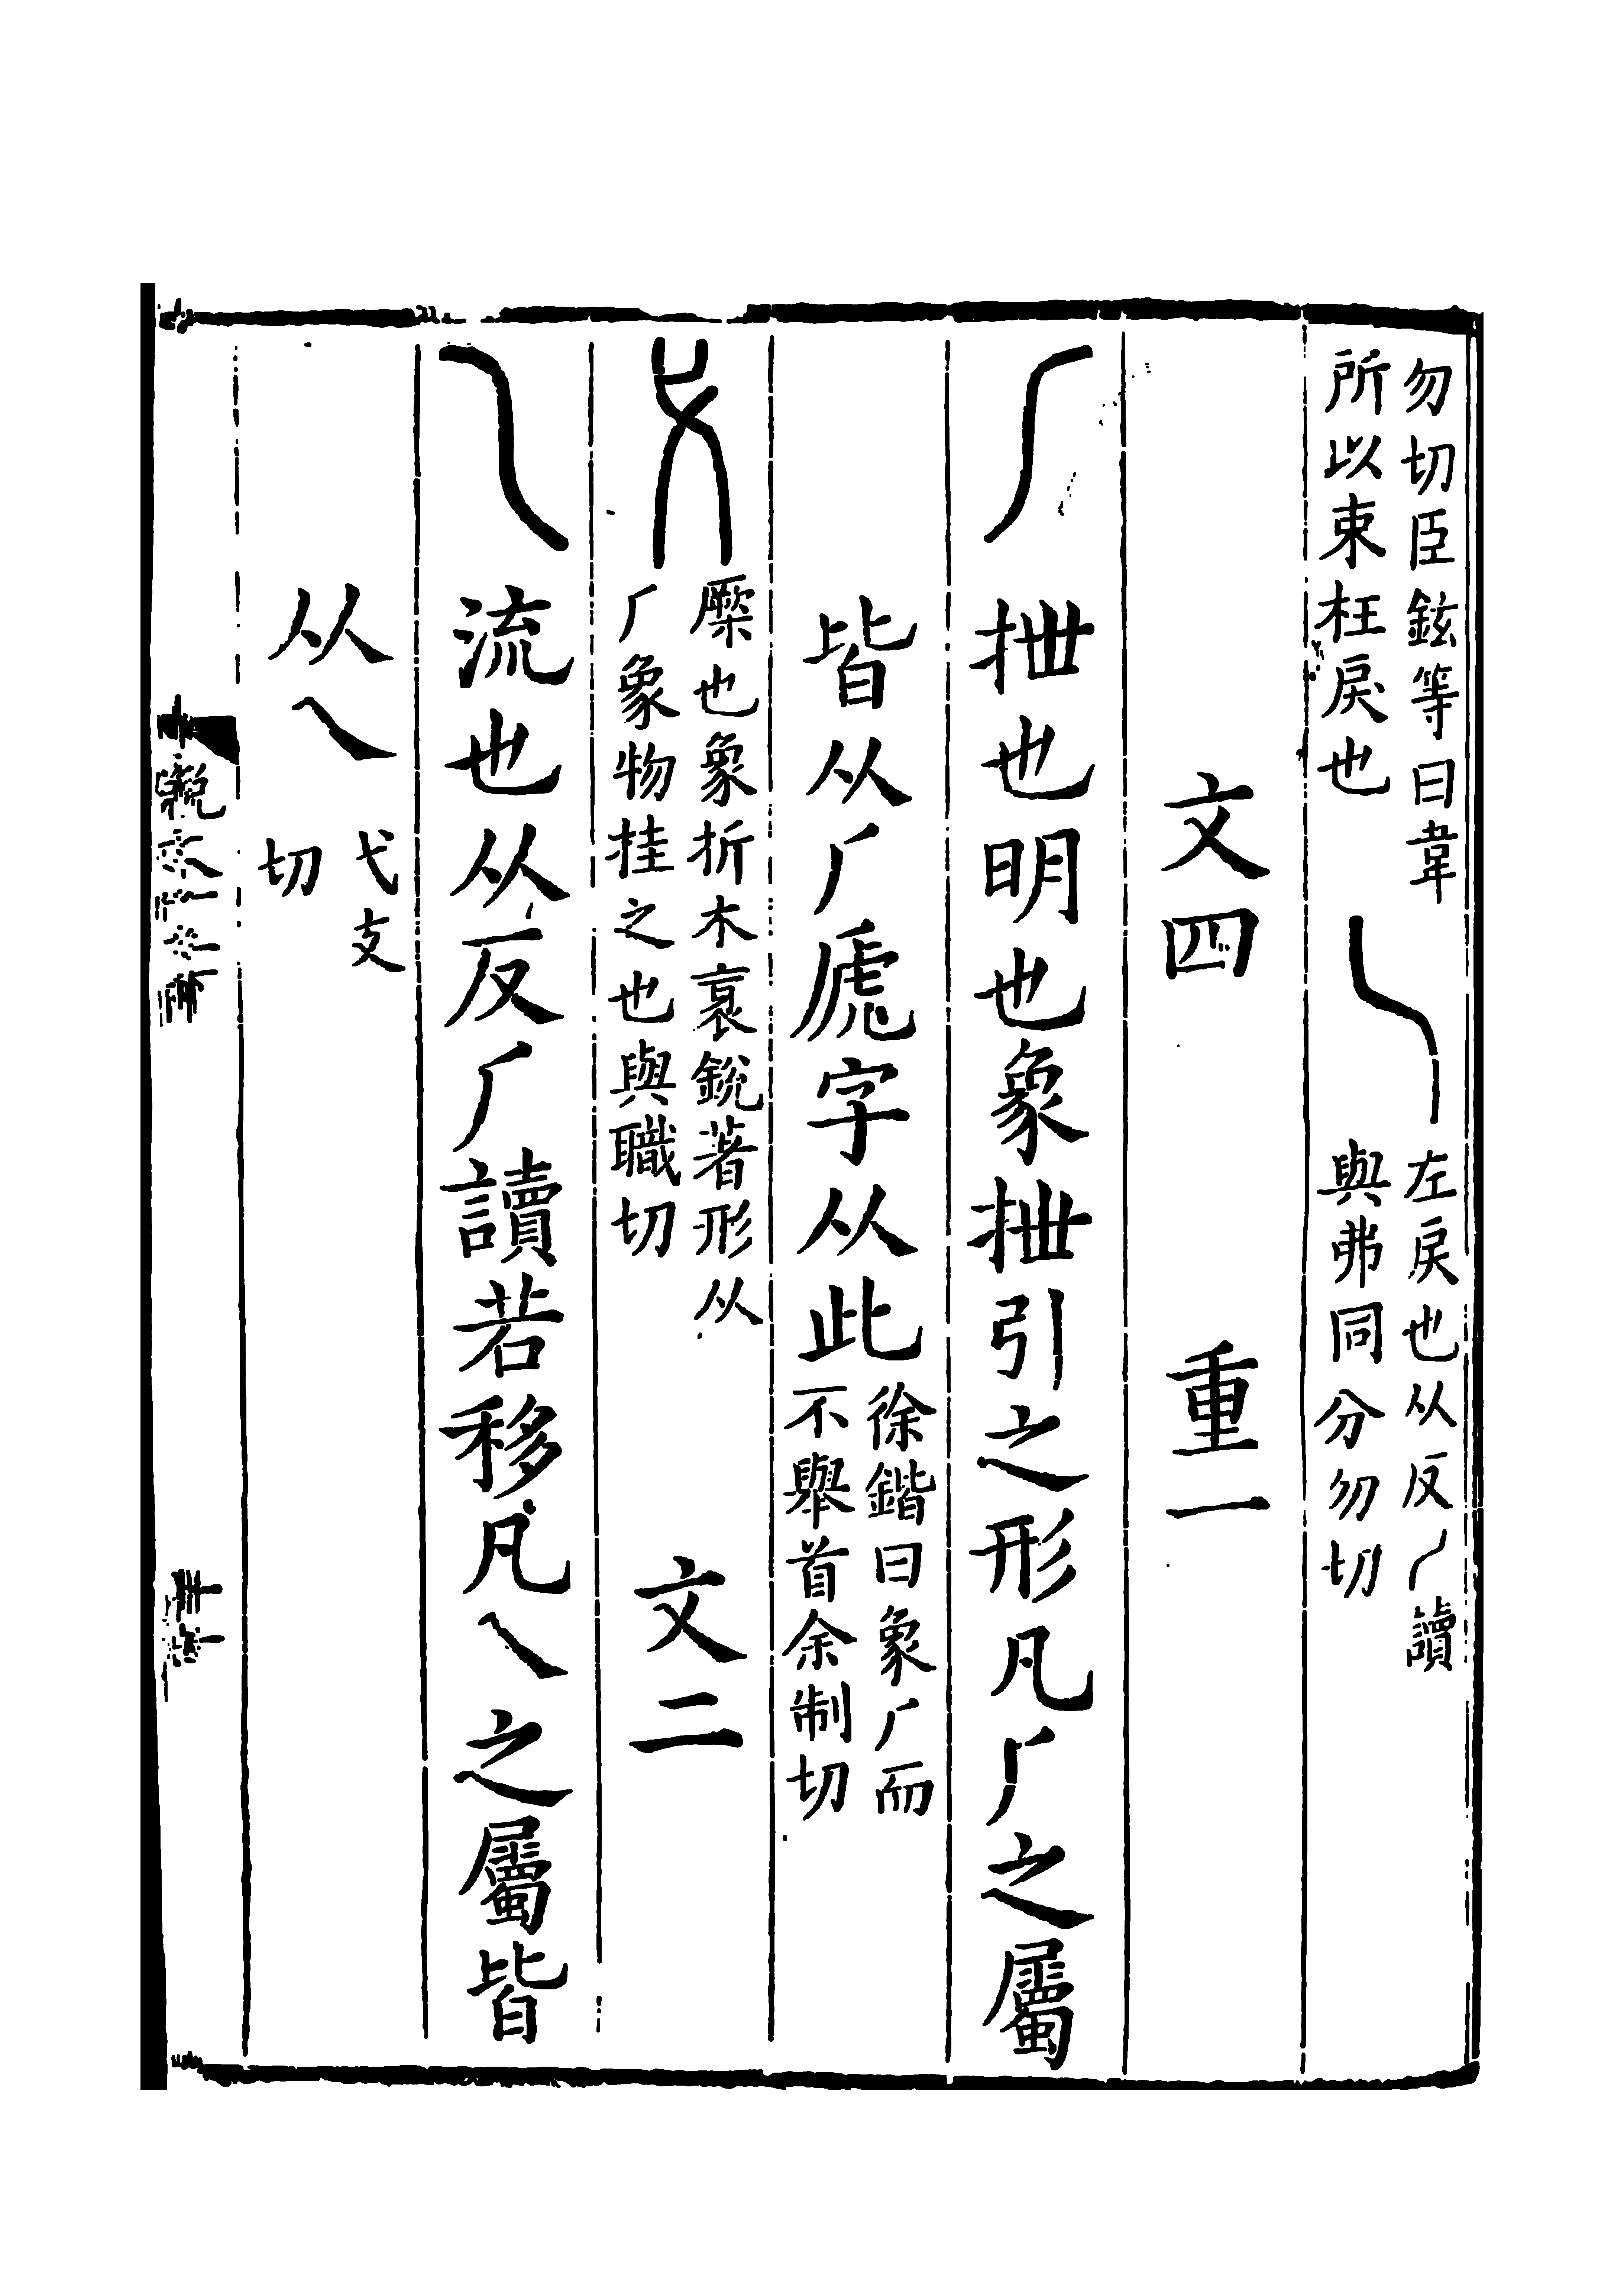 勿切臣鉉等曰韋
所以束枉戾也
乀
左戾也从反丿讀
與弗同分勿切
文四　重一
𠂆抴也明也象抴引之形凡𠂆之屬
皆从𠂆虒字从此
徐鍇曰象𠂆而
不舉首余制切
弋
橜也象折木衺銳著形从
𠂆象物挂之也與職切
文二
乁流也从反𠂆讀若移凡乁之屬皆
从乁
弋支
切